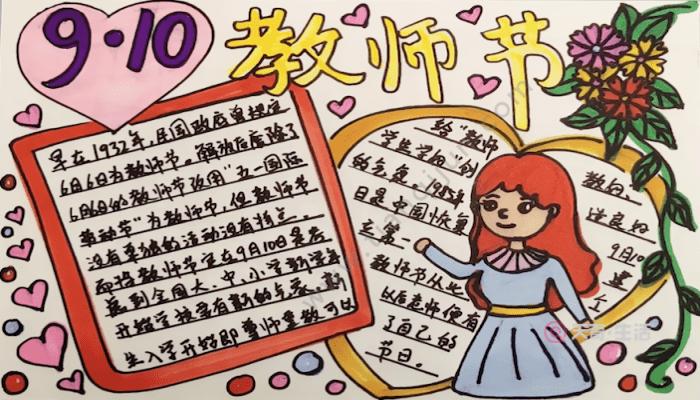 9·10
教师节
早在1932年，民国政府曾规定
6月6日为教师节。解放后废除了
6月6日的教师节改用“五一国际
劳动节”为教师节，但教师节
没有单独的活动没有特点。
而将教师节定在9月10日是考
虑到全国大、中、小学新学年
开始学校要有新的气象。新
生入学开始即尊师重教可以
给“教师
学生学习”创
的气氛。1985年
日是中国恢复
立第一
教师节从此
以后老师便有
了自己的
节日。
教好、
造良好
9月10
建
个